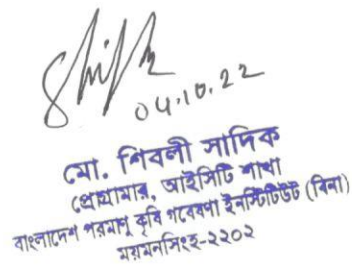 04.10.22
মো. শিবলী সাদিক
প্রোগ্রামার, আইসিটি শাখা
বাংলাদেশ পরমাণু কৃষি গবেষণা ইনস্টিটিউট (বিনা)
ময়মনসিংহ-২২০২